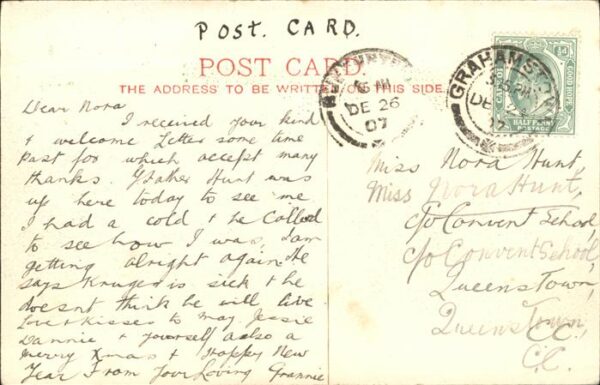 POST. CARD.
POST CARD.
THE ADDRESS TO BE WRITTEN ON THIS SIDE.
DE 26
07
GRAHAMSTOWN
DE
07
GOOD HOPE
HALF PENNY
POSTAGE
Dear Nora
I received your kind
& welcome Letter some time
past for which accept many
thanks Father Hunt was
up here today to see me
I had a cold & he called
to see how I was, I am
getting alright again. He
says Kruger is sick & he
doesnt think he will live
Love & Kisses to may Jessie
Dannie & yourself also a
merry Xmas & Happy New
Year From Your Loving Grannie
Miss Nora Hunt,
Miss Nora Hunt,
c/o Convent School,
c/o Convent School,
Queenstown,
Queenstown,
C.C.
C.C.